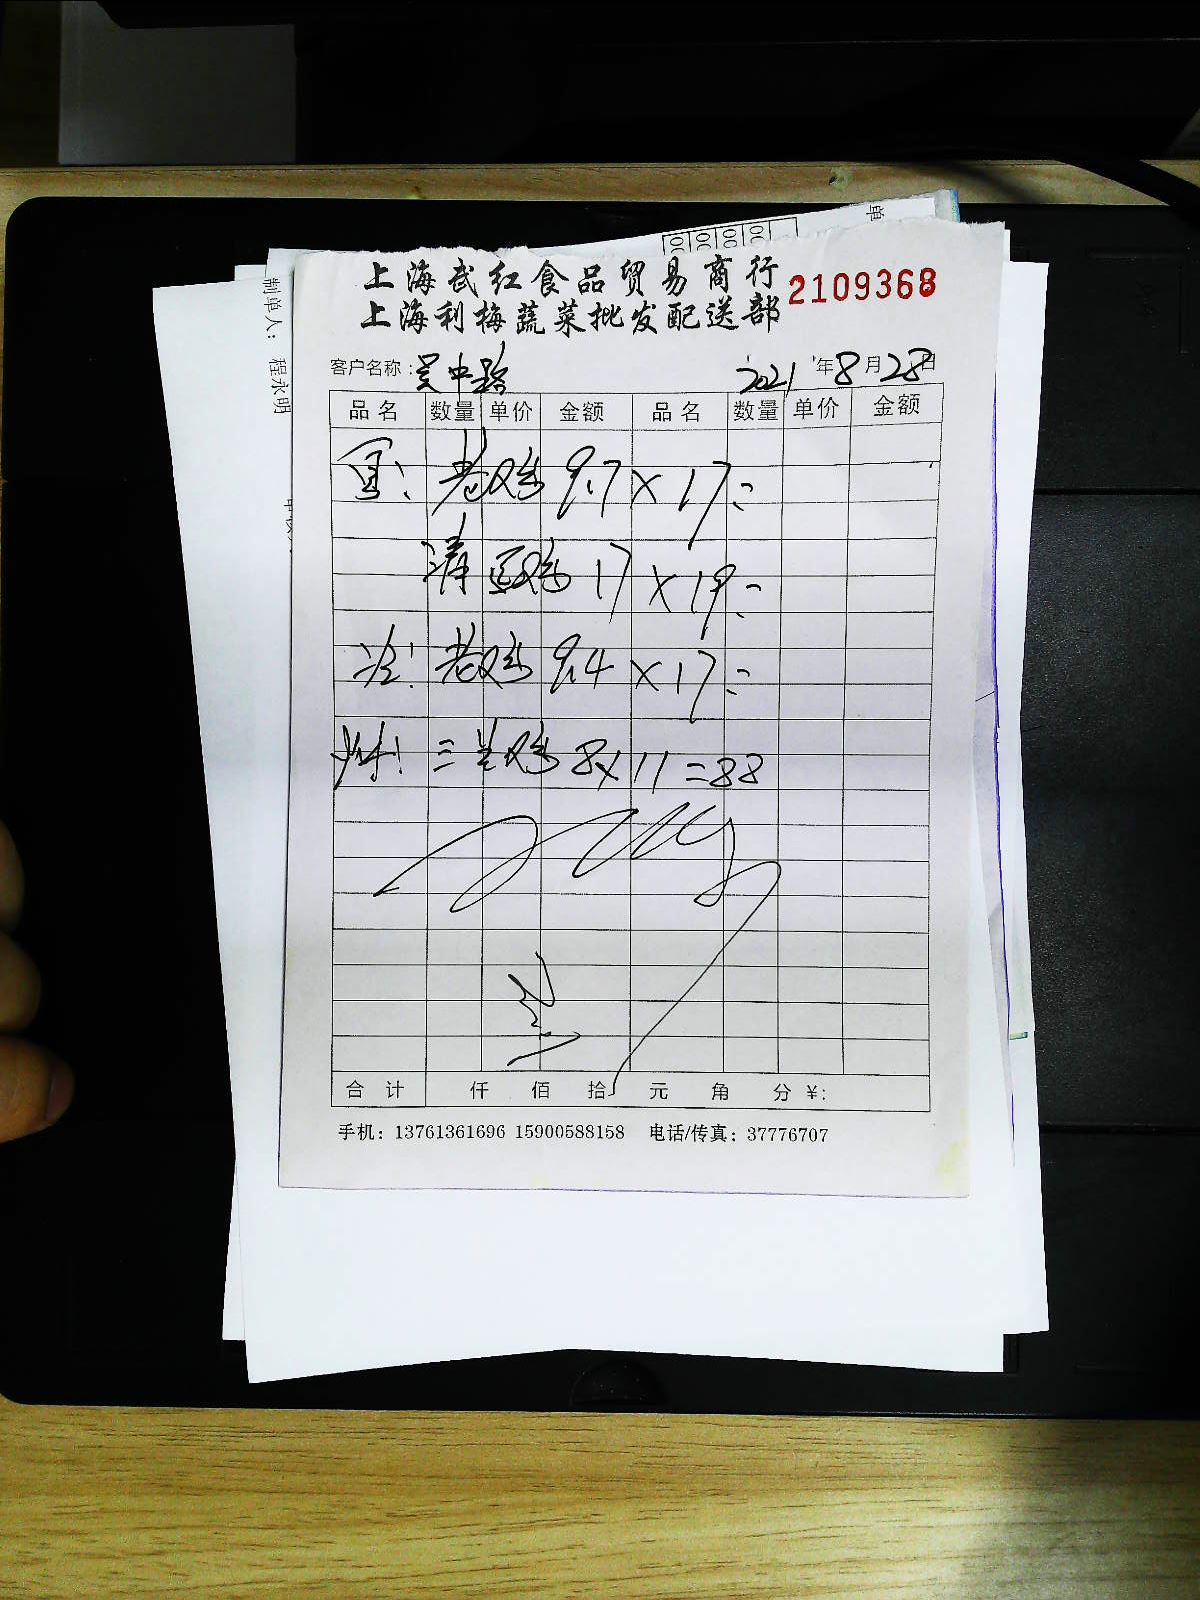 单
制单人：程永明
上海武红食品贸易商行
上海利梅蔬菜批发配送部 2109368
客户名称：吴中路 2021年8月28日
品名 数量 单价 金额 品名 数量 单价 金额
老鸡 9.7×17=
清远鸡 17×19=
冷：老鸡 9.4×17=
三黄鸡 8×11=88
合计 仟 佰 拾 元 角 分 ¥:
手机：13761361696 15900588158 电话/传真：37776707